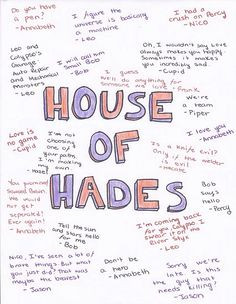 Do you have a pen?
- Annabeth
I figure the universe is basically a machine
- Leo
I had a crush on Percy
- Nico
Leo and Calypso's Garage: Auto Repair and Mechanical Monsters
- Leo
I will call him small Bob
- Bob
Oh, I wouldn't say Love always makes you happy. Sometimes it makes you incredibly sad
- Cupid
I guess we'll do anything for someone we love
- Frank
HOUSE
OF
HADES
We're a team
- Piper
Love is no game
- Cupid
I'm not choosing one of your paths. I'm making my own
- Hazel
I love you
- Annabeth
In a knife fight?
Only if the welder is
- Leo
You promised Seaweed Brain. We would not get separated! Ever again!
- Annabeth
Bob says hello
- Percy
Tell the sun and stars hello for me
- Bob
I'm coming back for you Calypso. I swear it on the River Styx
- Leo
Nico, I've seen a lot of brave things. But what you just did? That was maybe the bravest
- Jason
Don't be a hero
- Annabeth
Sorry we're late. Is this the guy that needs killing?
- Jason